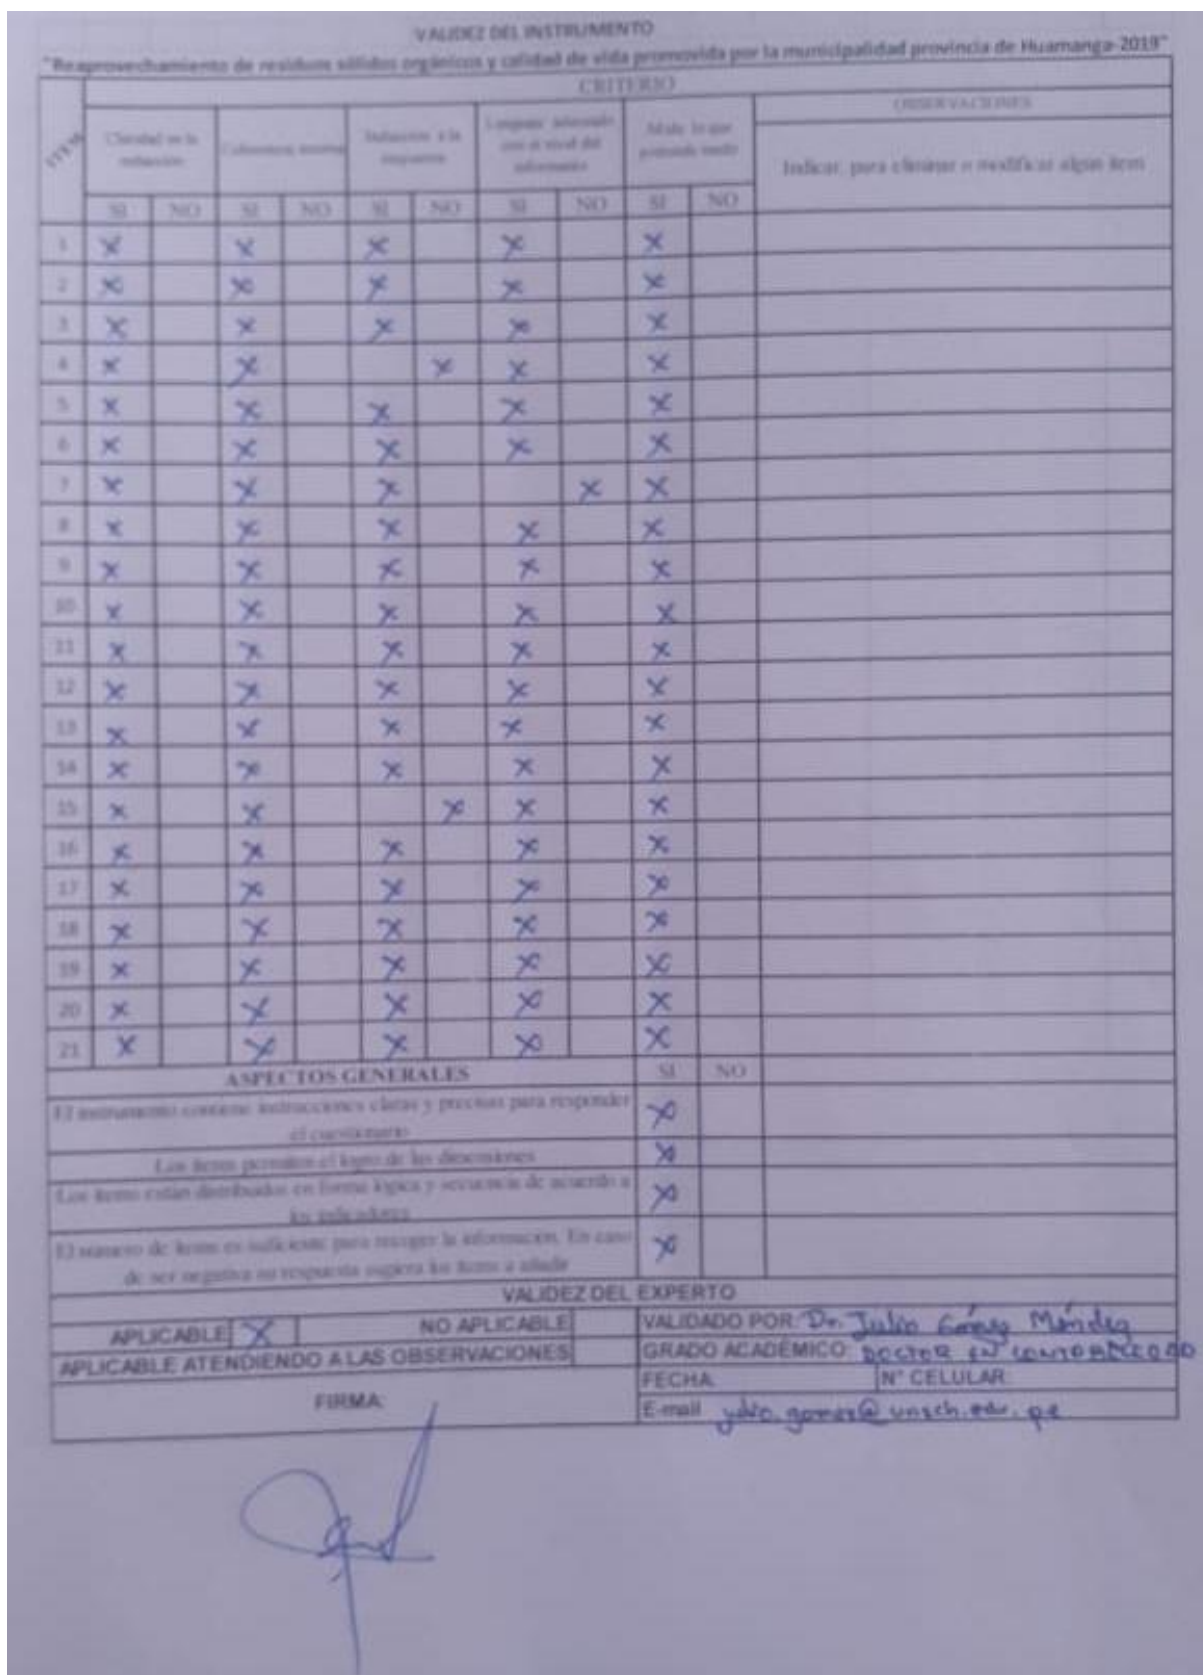 VALIDEZ DEL INSTRUMENTO
"Reaprovechamiento de residuos sólidos orgánicos y calidad de vida promovida por la municipalidad provincia de Huamanga-2019"
ITEM
CRITERIO
OBSERVACIONES
Claridad en la redacción
Coherencia interna
Inducción a la respuesta
Lenguaje adecuado con el nivel del informante
Mide lo que pretende medir
Indicar, para eliminar o modificar algún ítem
SI NO SI NO SI NO SI NO SI NO
1 X X X X X
2 X X X X X
3 X X X X X
4 X X X X X
5 X X X X X
6 X X X X X
7 X X X X X
8 X X X X X
9 X X X X X
10 X X X X X
11 X X X X X
12 X X X X X
13 X X X X X
14 X X X X X
15 X X X X X
16 X X X X X
17 X X X X X
18 X X X X X
19 X X X X X
20 X X X X X
21 X X X X X
ASPECTOS GENERALES SI NO
El instrumento contiene instrucciones claras y precisas para responder
el cuestionario X
Los ítems permiten el logro de las dimensiones X
Los ítems están distribuidos en forma lógica y secuencia de acuerdo a
los indicadores X
El número de ítems es suficiente para recoger la información. En caso
de ser negativa su respuesta sugiera los ítems a añadir X
VALIDEZ DEL EXPERTO
APLICABLE X NO APLICABLE
APLICABLE ATENDIENDO A LAS OBSERVACIONES
FIRMA:
VALIDADO POR: Dr. Julio Gómez Méndez
GRADO ACADÉMICO: DOCTOR EN CONTABILIDAD
FECHA: N° CELULAR:
E-mail gomez@unsch.edu.pe